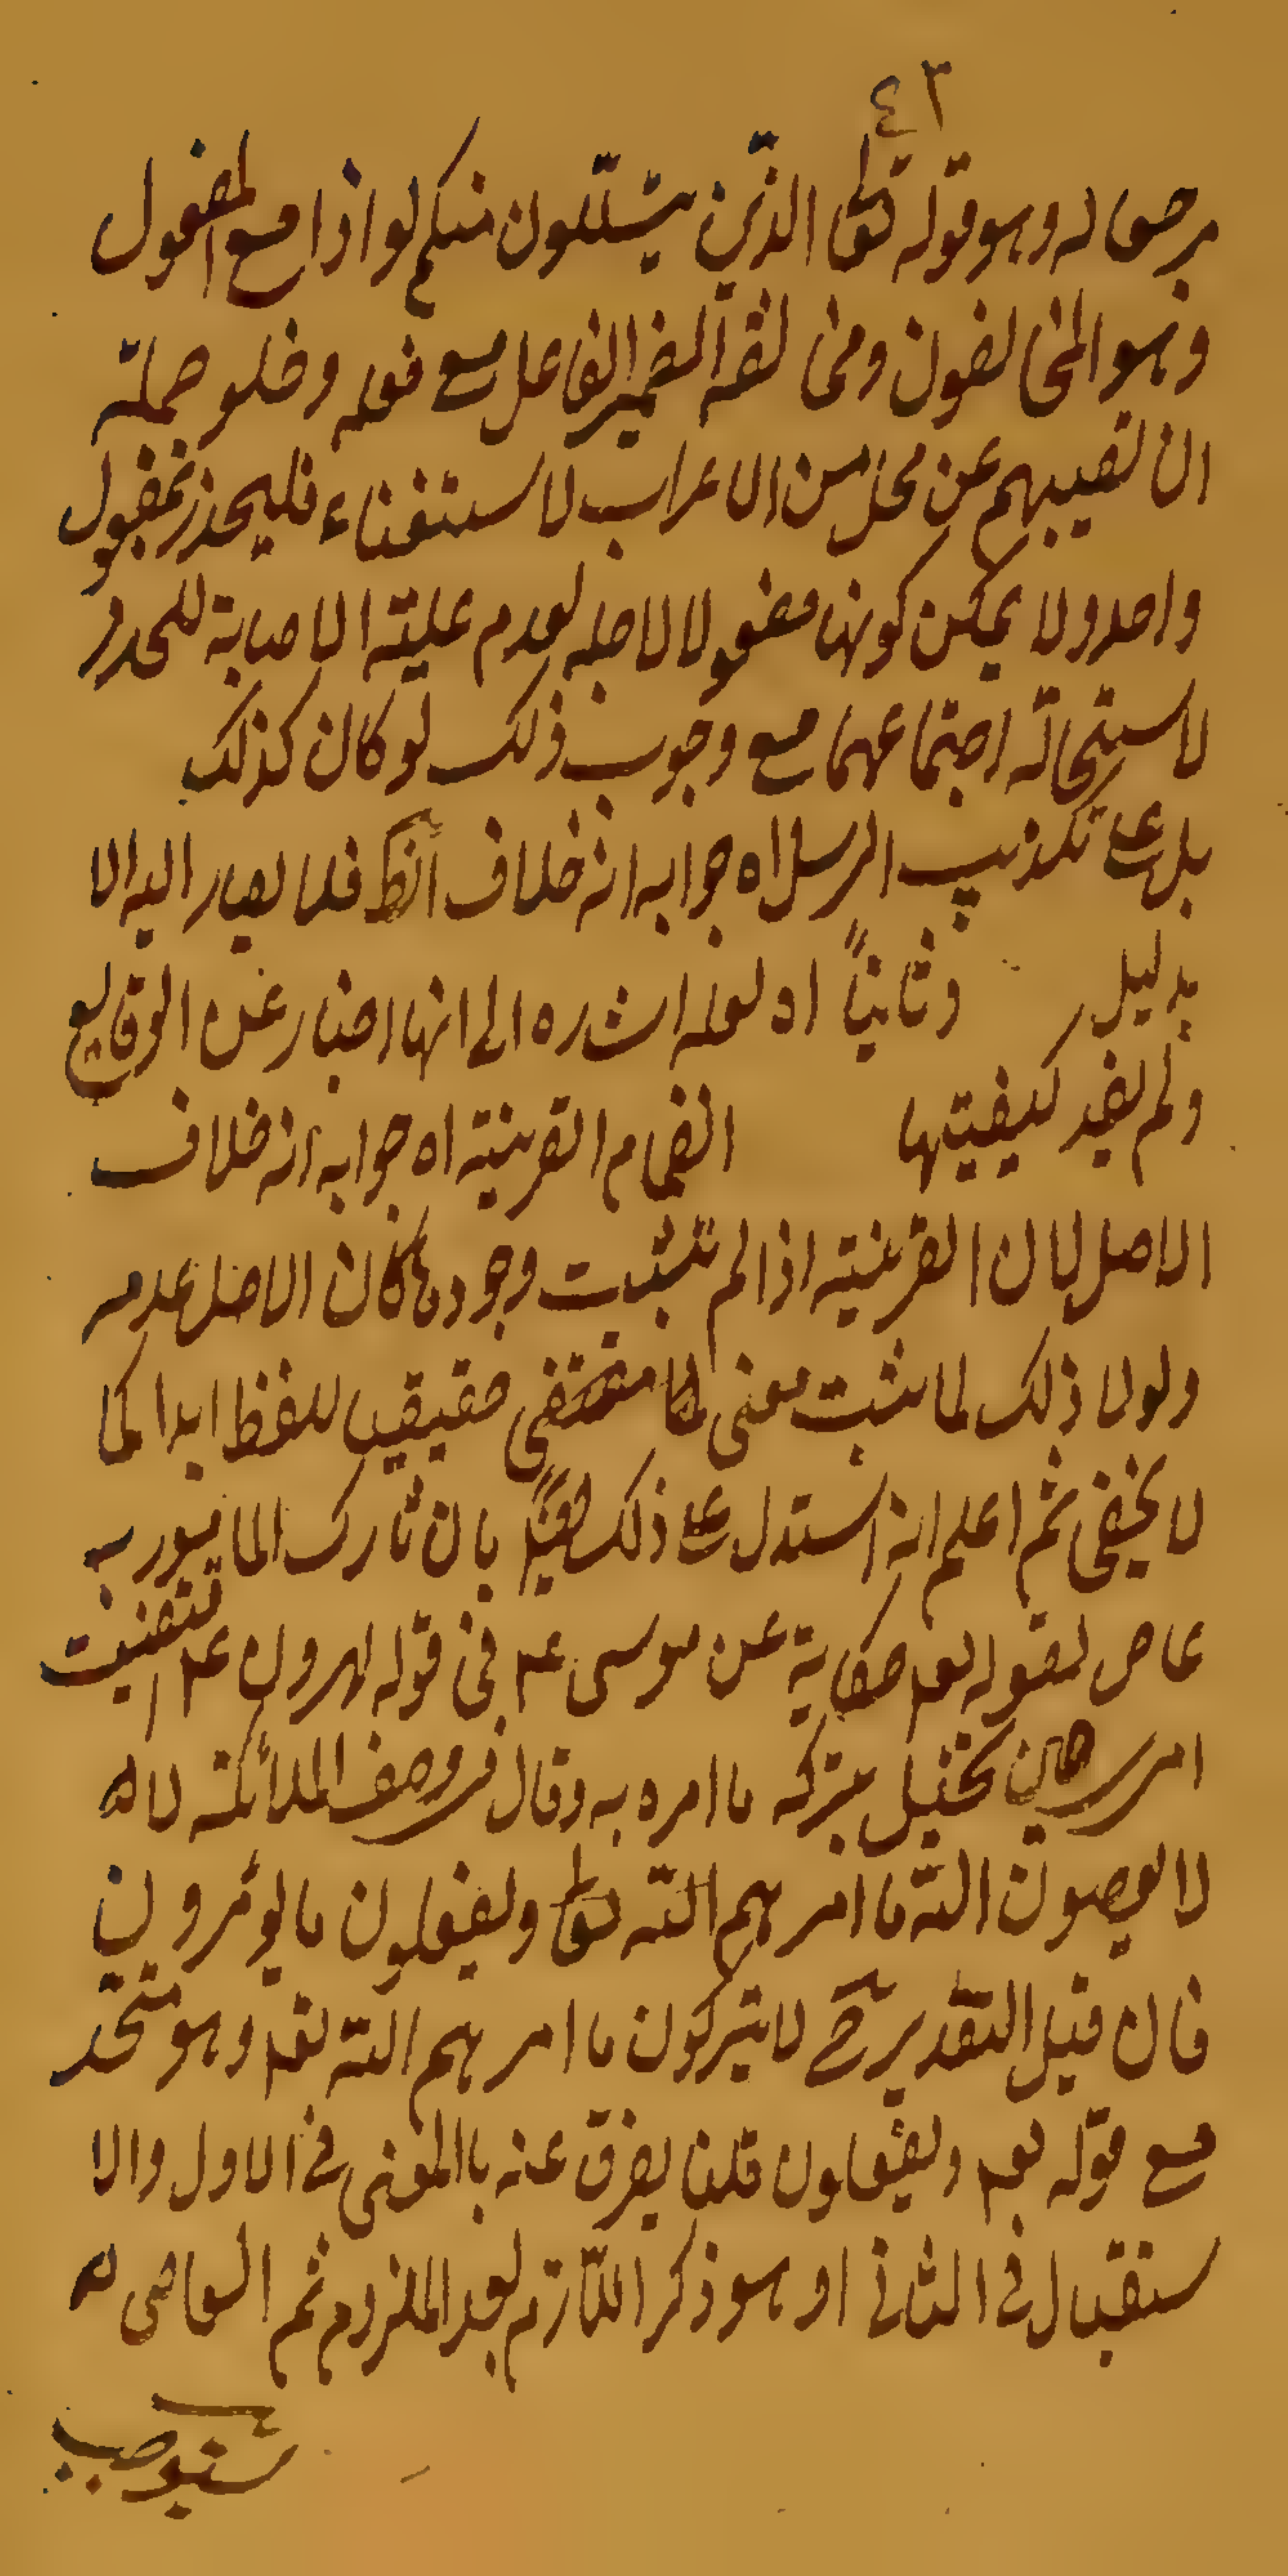 ٤٣
مرجعا له وهو قوله تعالى الذين يتسللون منكم لواذا مع المفعول
وهو المخالفون ومخالفة الضمير الفاعل مع فعله وخلو جملة
ان تصيبهم عن محل من الاعراب لاستغناء فليحذر بمفعول
واحد ولا يمكن كونها مفعولا لاجله لعدم علية الاصابة للحذر
لاستحالة اجتماعهما مع وجوب ذلك لو كان كذلك
بل على تكذيب الرسل اه جوابه انه خلاف الظ فلا يصار اليه الا
بدليل وثانياً اه لعله اشاره الى انها اخبار عن الوقايع
ولم يفد كيفيتها انضمام القرينة اه جوابه انه خلاف
الاصل لان القرينة اذا لم تثبت وجودها كان الاصل عدمه
ولولا ذلك لما يثبت معنى حقيقيا للفظ ابدا كما
لا يخفى ثم اعلم انه استدل على ذلك ايضاً بان تارك المامور به
عاص لقوله تعم حكاية عن موسى عم في قوله لهرون عم افعصيت
امرى حين تخيل بتركه ما امره به وقال في وصف الملائكة لا
لا يعصون الله ما امرهم الله تعالى ويفعلون ما يؤمرون
فان قيل التقدير ح لا يتركون ما امرهم الله تعم وهو متحد
مع قوله تعم ويفعلون قلنا يفرق عنه بالمعنى في الاول والا
ستقبال في الثاني او هو ذكر اللازم بعد الملزوم ثم العاصى
يستوجب